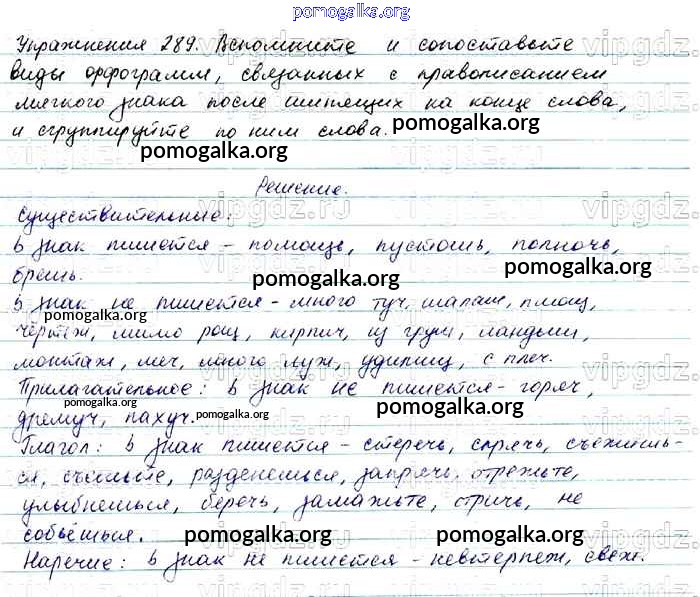 pomogalka.org
Упражнения 289. Вспомните и сопоставьте
виды орфограмм, связанных с правописанием
мягкого знака после шипящих на конце слова,
и сгруппируйте по ним слова. pomogalka.org
pomogalka.org
Решение.
vipgdz.ru vipgdz.ru
Существительные: pomogalka.org
ь знак пишется - помощь, пустошь, полночь,
брешь. pomogalka.org
ь знак не пишется - много туч, шалаш, плющ,
pomogalka.org
чертёж, мимо рощ, кирпич, из груш, ландыш,
монтаж, меч, много луж, удилищ, с плеч.
Прилагательное: ь знак не пишется - горяч,
дремуч, пахуч. pomogalka.org pomogalka.org
Глагол: ь знак пишется - стеречь, спрячь, съежишь-
ся, съешьте, разденешься, запрячь, отрежьте,
улыбнешься, беречь, замажьте, стричь, не
собьёшься. pomogalka.org pomogalka.org
Наречие: ь знак не пишется - невтерпеж, свеж.